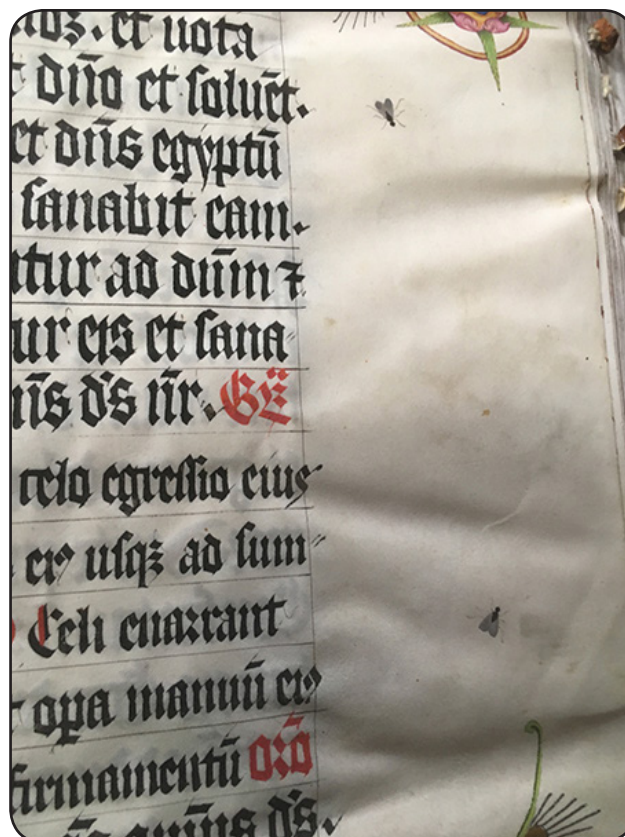 et uota
dño et ſoluēt.
et dn̄s egyptū
ſanabit eam.
ad dūm ⁊
eis et ſana
d's nr̄.
celo egreſſio eius
eiꝰ uſqꝫ ad ſum
Celi enarrant
opa manuū eiꝰ
firmamentū oꝛō
d's.